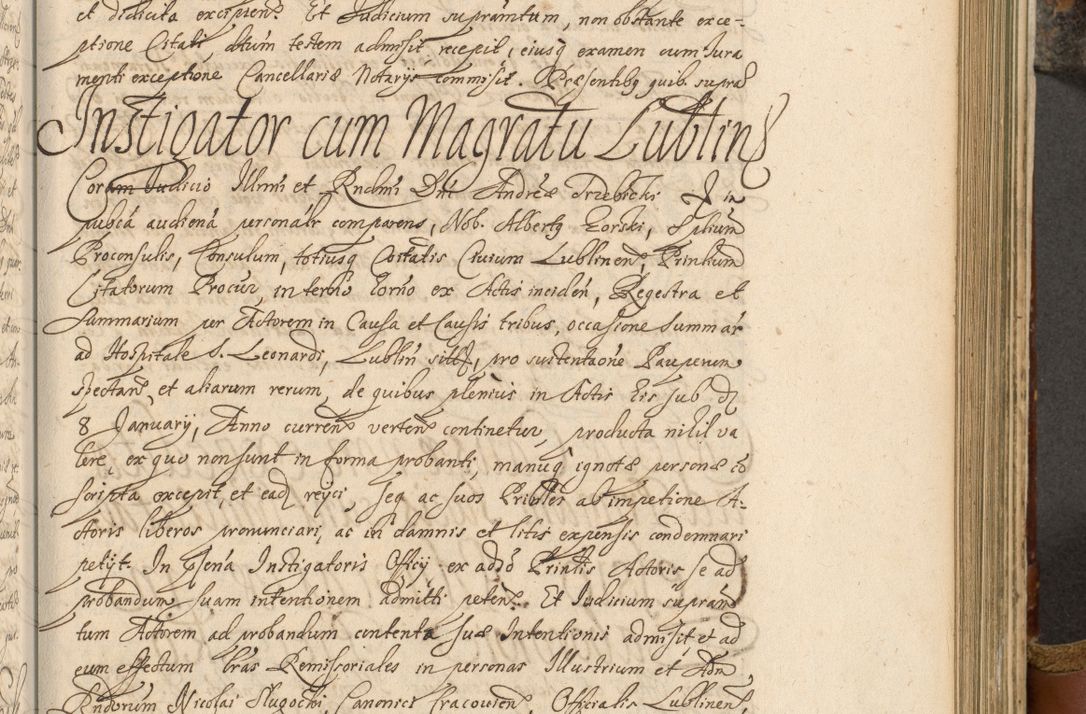 et dicticita excipien? Et Iudicium supramtum, non obstante exce-
ptione Citati, dtum testem admisit, recepit, eiusq examen cum Iura
menti exceptione Cancellariæ Notarijs commisit. Præsentibq quib. supra
Instigator cum Magratu Lublin
Coram Iudicio Illmi et Rndmi Dni Andreæ Trzebicki in
pubca audiena personalr comparens, Nob. Albertq Gorski,
Proconsulis, Consulum, totiusq Coitatis Civium Lublinen, Printium
Citatorum Procur, in termo horno ex Actis inciden, Regestra et
summarium per Actorem in Causa et Causis tribus, occasione summar
ad Hospitale S. Leonardi, Lublin sitt, pro sustentaone Pauperum
spectan, et aliarum rerum, de quibus plenius in Actis Eis sub d
8 January, Anno curren verten continetur, producta nihil va
lere, ex quo non sunt in forma probanti, manuq ignotæ personæ co
scripta excepit, et ead reijci, seq ac suos Prinles ab impetione A-
ctoris liberos pronunciari, ac in damnis et litis expensis condemnari
petijt. In psena Instigatoris Officij ex adso Prinlis Actoris se ad
probandum suam intentionem admitti peten. Et Iudicium supram
tum Actorem ad probandum contenta suæ Intentionis admisit, et ad
eum effectum lras Remissoriales in personas Illustrium et Adm
Rndorum Nicolai Slugocki, Canonici Cracovien, Officialis Lublinen,